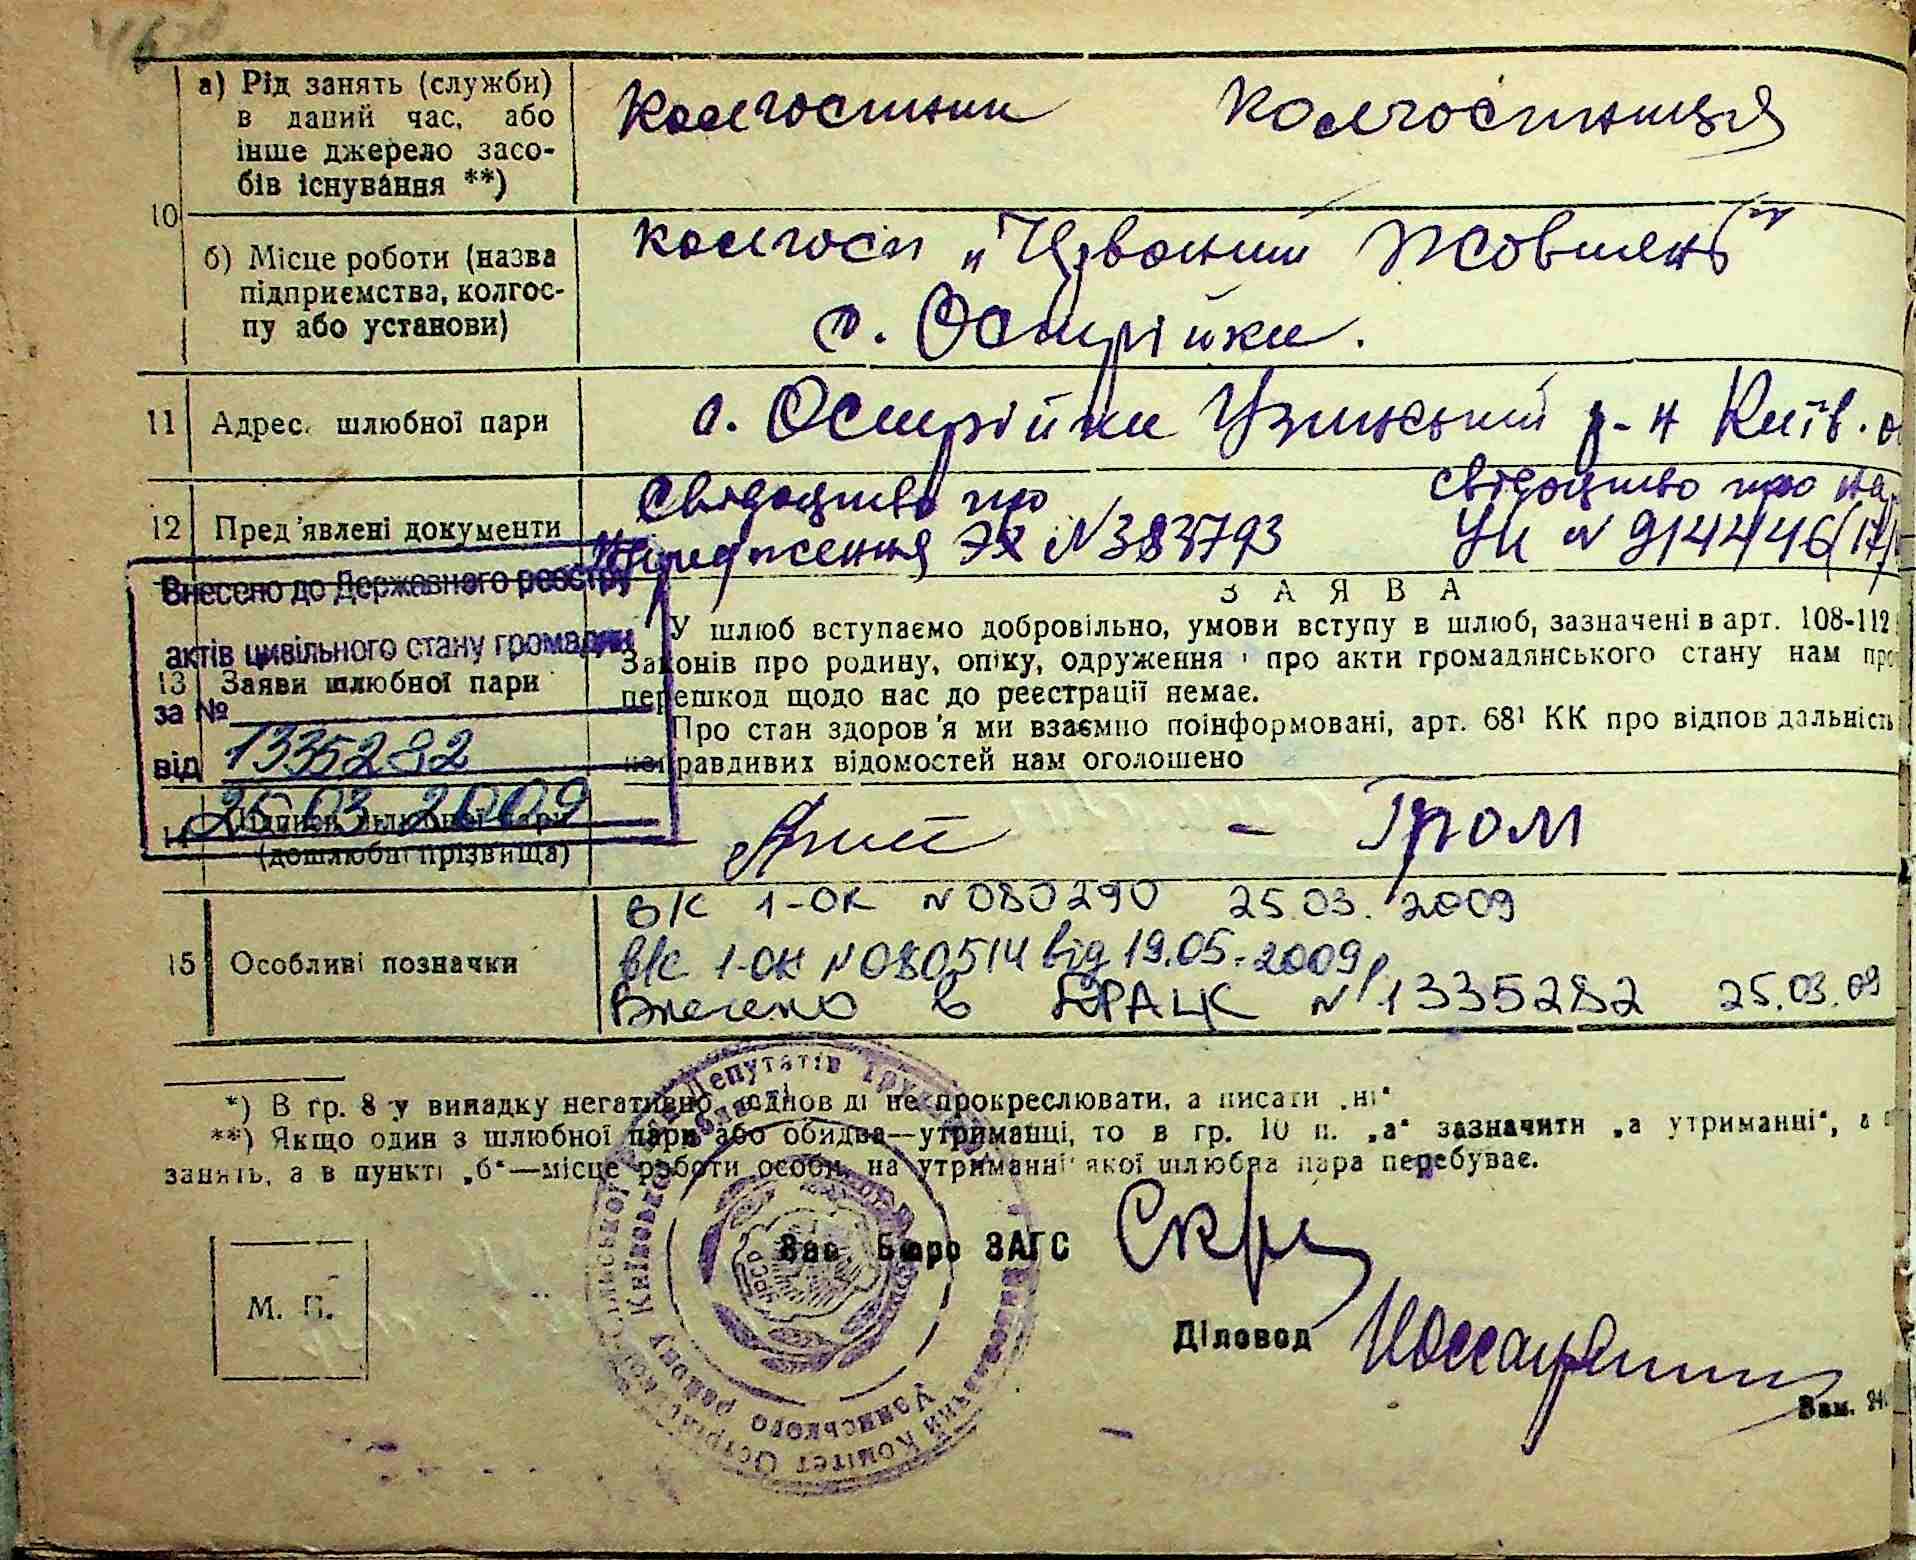 а) Рід занять (служби)
в даний час, або
інше джерело засо-
бів існування **)
колгоспник колгоспниця
10
б) Місце роботи (назва
підприємства, колгос-
пу або установи)
колгосп „Червоний Жовтень"
с. Острійки.
11 Адрес. шлюбної пари
с. Острійки Узинський р-н Київ. о
12 Пред'явлені документи
Свідоцтво про
народження ЭЯ №383793
свідоцтво про на
УК № 914446
Внесено до Державного реєстру
актів цивільного стану громадян
за №
1335282
від
25.03.2009
13 Заяви шлюбної пари
ЗАЯВА
У шлюб вступаємо добровільно, умови вступу в шлюб, зазначені в арт. 108-112
Законів про родину, опіку, одруження і про акти громадянського стану нам
перешкод щодо нас до реєстрації немає.
Про стан здоров'я ми взаємно поінформовані, арт. 68¹ КК про відповідальність
неправдивих відомостей нам оголошено
14 Підписи шлюбної пари
(дошлюбні прізвища)
– Гром
15 Особливі позначки
в/с 1-ОК №080290 25.03.2009
в/с 1-ОК №080514 від 19.05.2009р
Внесено в ДРАЦС №1335282 25.03.09
*) В гр. 8 у випадку негативно відповіді не прокреслювати, а писати „ні“
**) Якщо один з шлюбної пари або обидва—утриманці, то в гр. 10 п. „а“ зазначити „а утриманні“, а в
занять, а в пункті „б“—місце роботи особи, на утриманні якої шлюбна пара перебуває.
М. П.
Зав. Бюро ЗАГС
Діловод
Виконавчий Комітет Острійської Сільської Ради Депутатів Трудящих
Узинського району Київської області
УРСР
Зам. 94